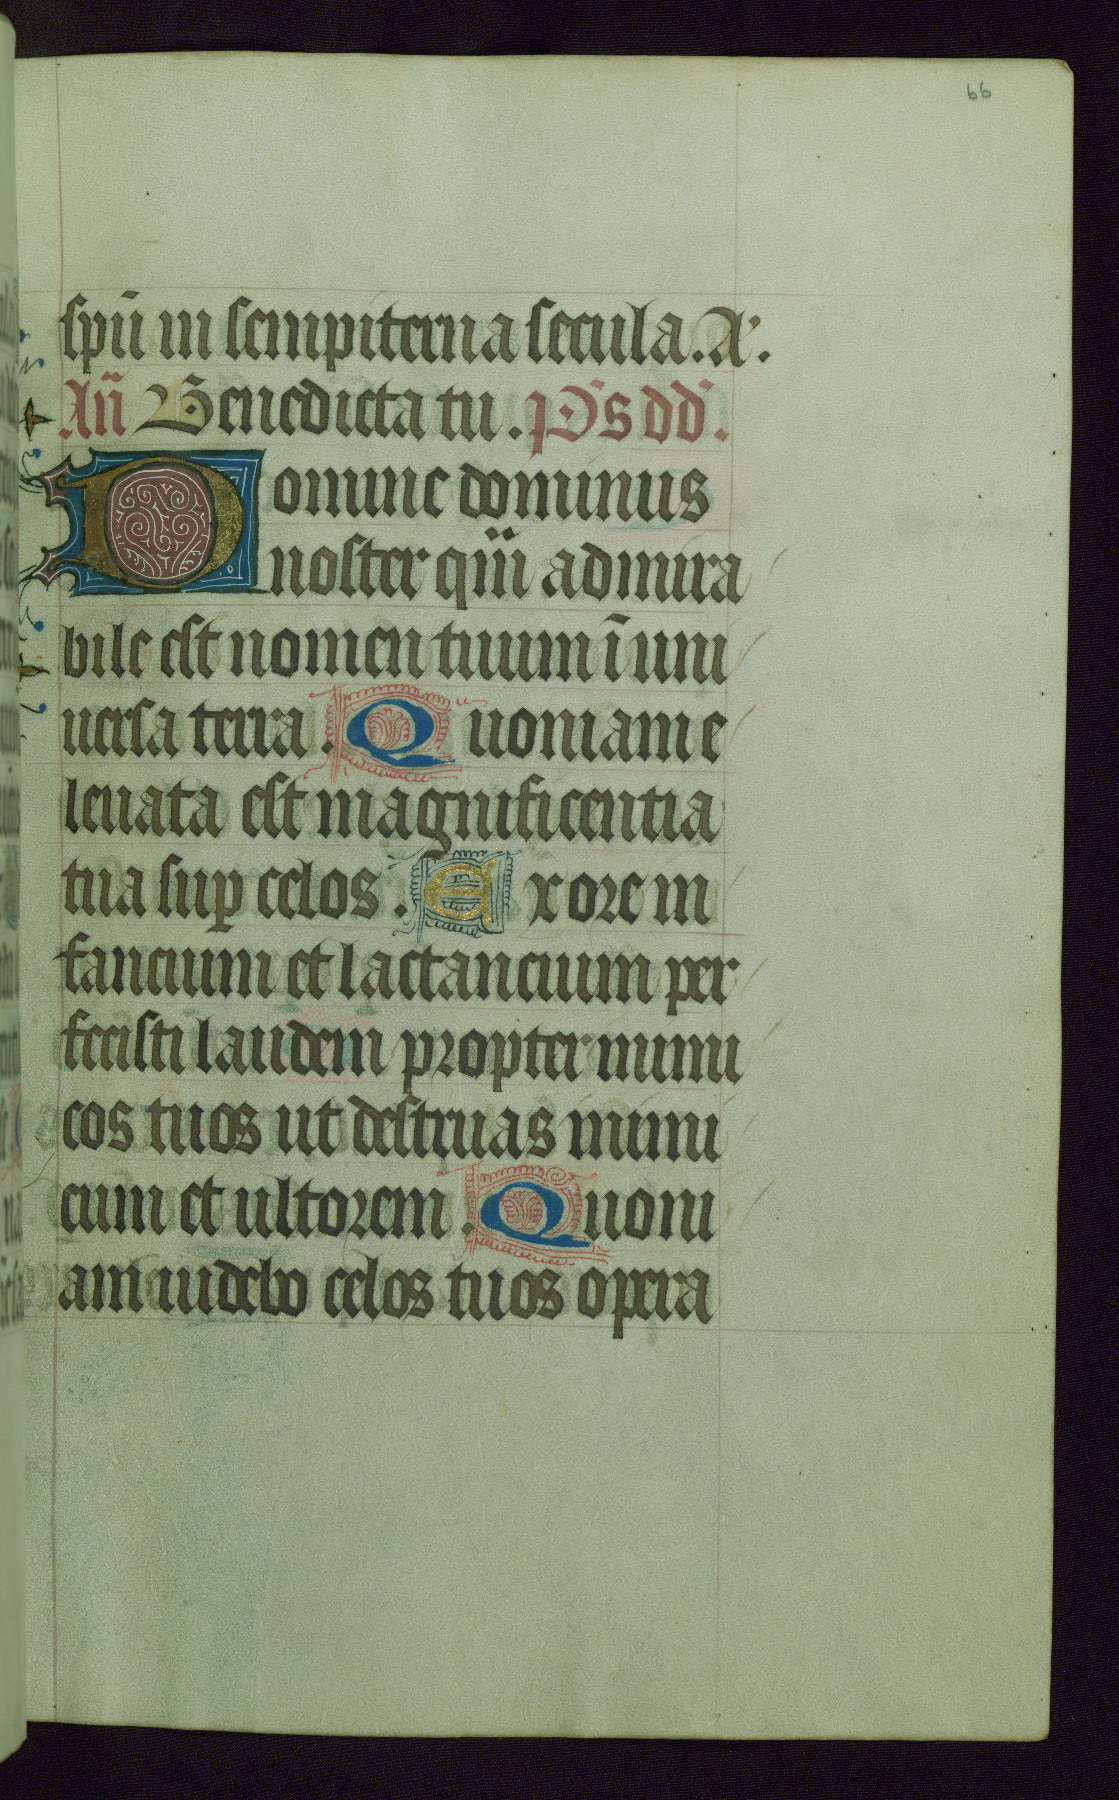 66
spū in sempiterna secula. A.
An̄ Benedicta tu. p̄s dd.
Domine dominus
noster qm̄ admira
bile est nomen tuum ī uni
uersa terra. Quoniam e
leuata est magnificentia
tua sup celos. Ex ore in
fancium et lactancium per
fecisti laudem propter inimi
cos tuos ut destruas inimi
cum et ultorem. Quoni
am uidebo celos tuos opera